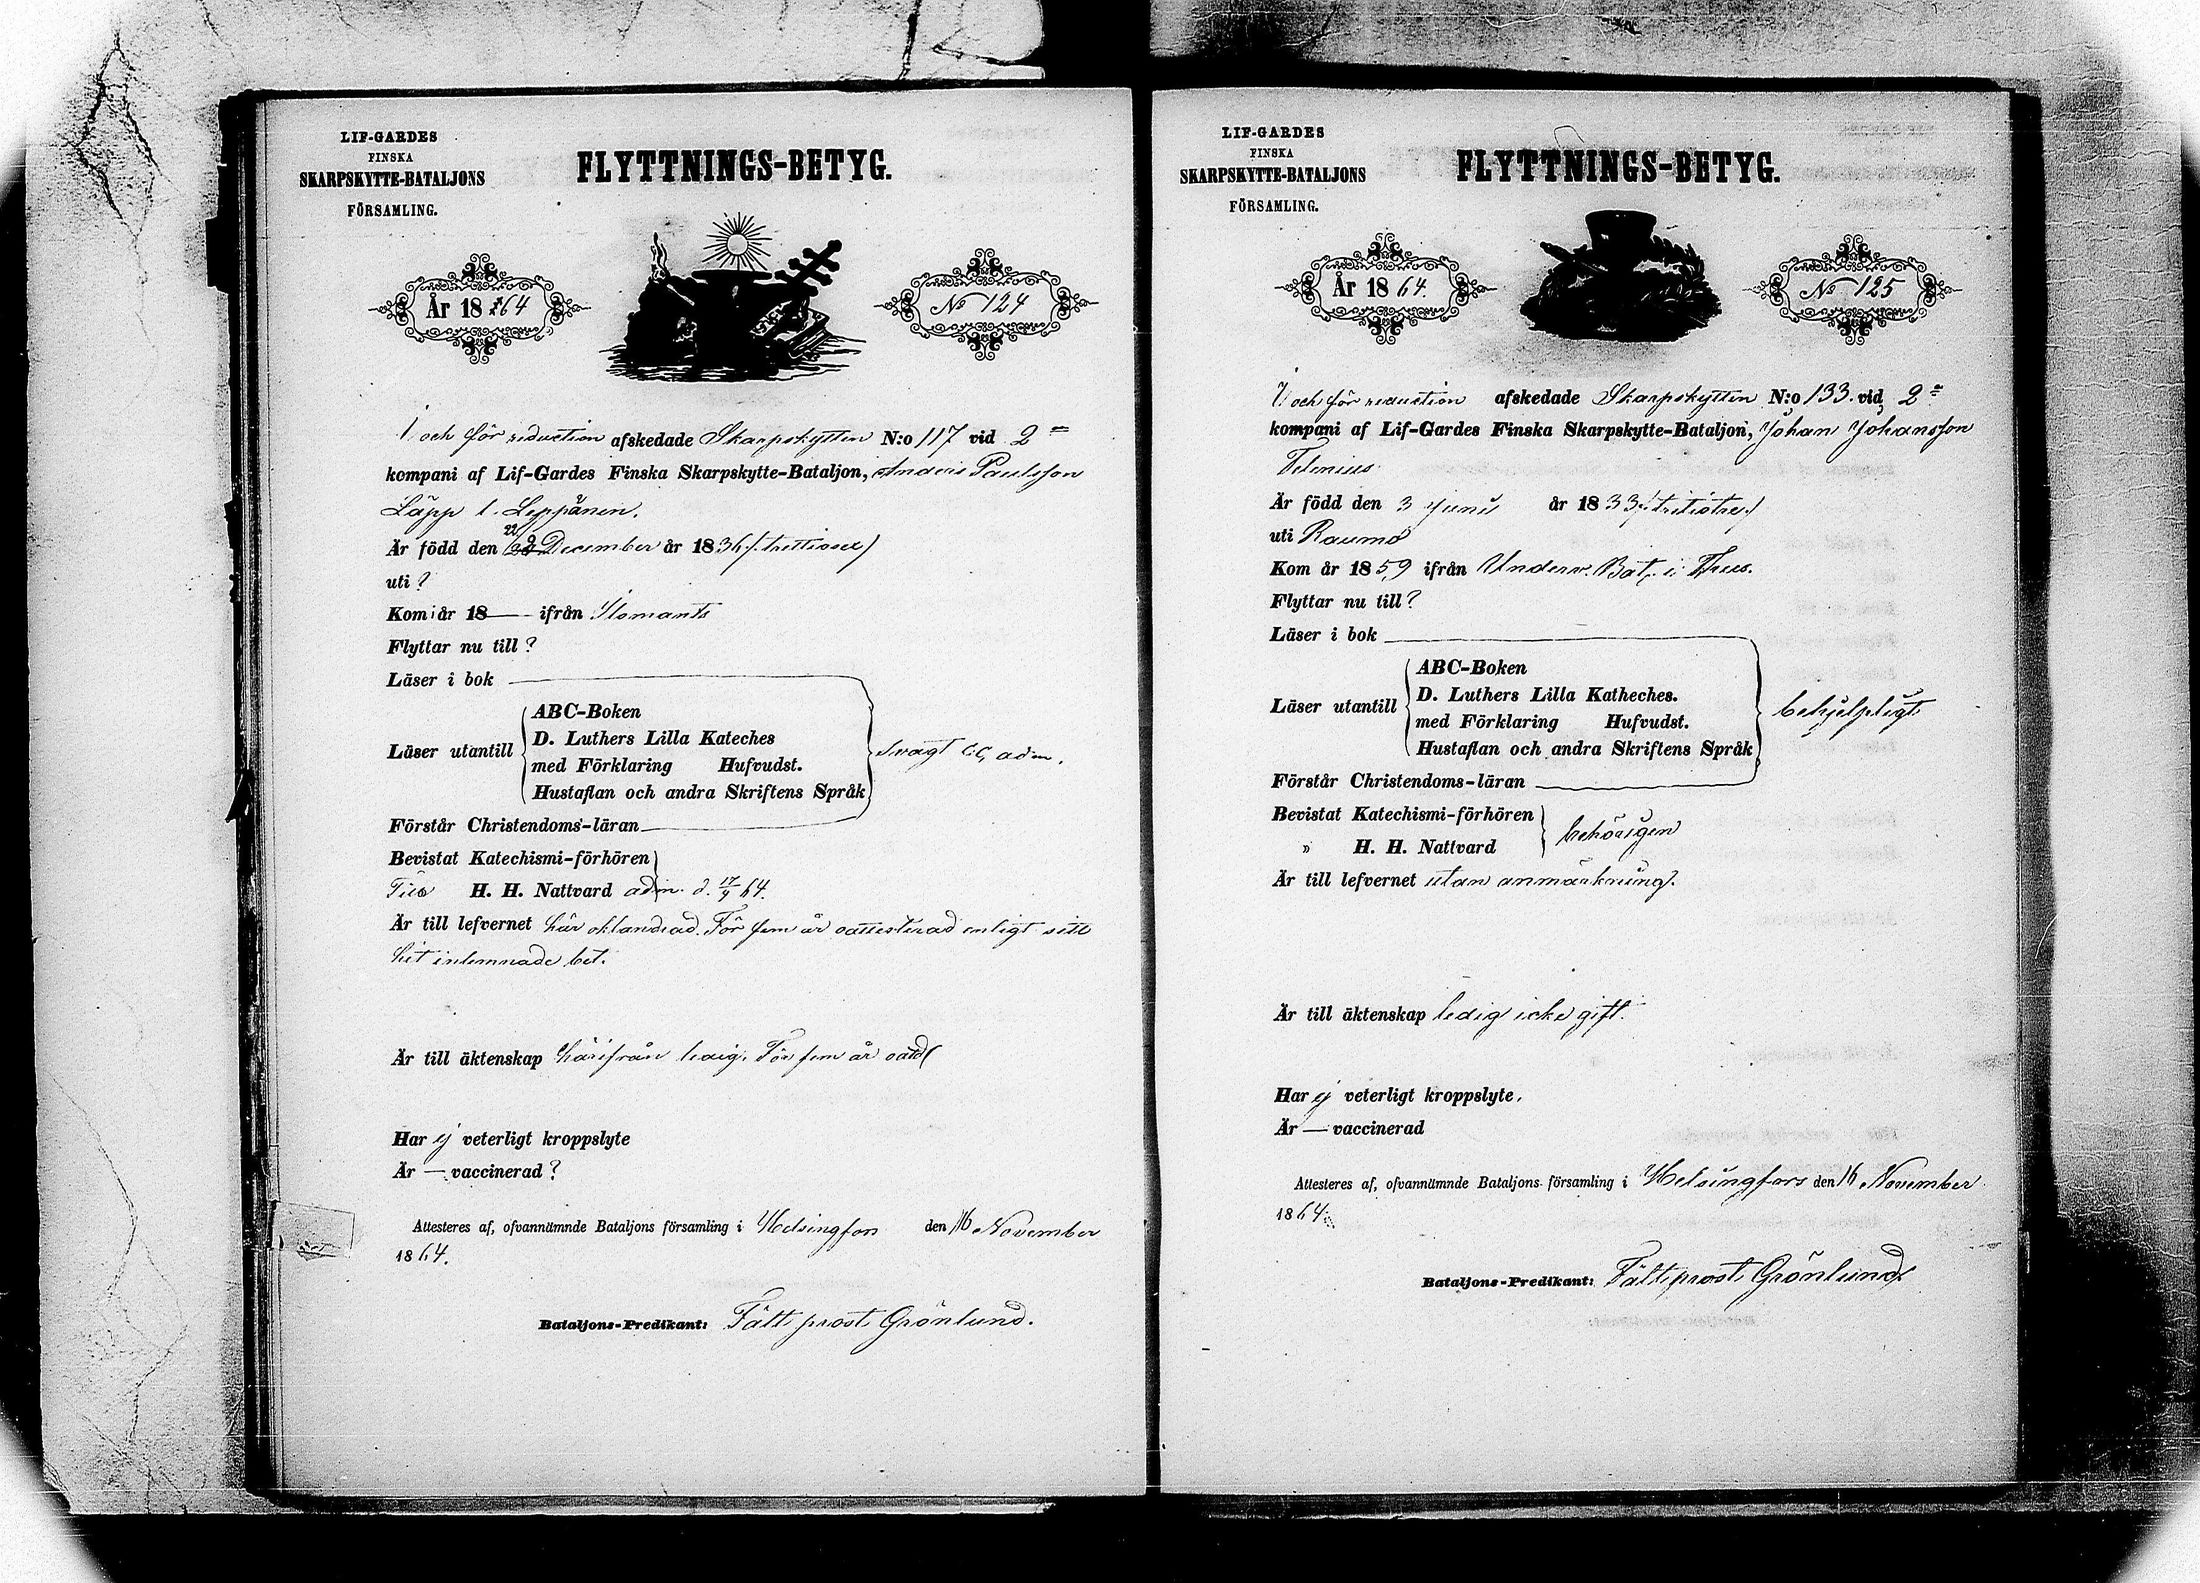 LIF-GARDES
FINSKA
SKARPSKYTTE-BATALJONS
FÖRSAMLING.
FLYTTNINGS-BETYG.
År 1864
No 124
I och för reduction afskedade Skarpskytten N:o 117 vid 2
kompani af Lif-Gardes Finska Skarpskytte-Bataljon, Anders Paulsson
Läpp l. Leppänen.
22
Är född den December år 1836 (trettiosex)
uti ?
Kom år 18— ifrån Ilomants
Flyttar nu till ?
Läser i bok
Läser utantill
ABC-Boken
D. Luthers Lilla Kateches
med Förklaring Hufvudst.
Hustaflan och andra Skriftens Språk
Svagt adm.
Förstår Christendoms-läran
Bevistat Katechismi-förhören
H. H. Nattvard adm. d. 17/9 64.
Är till lefvernet här oklandrad. För fem år oattesterad enligt sitt
hit inlemnade bet.
Är till äktenskap härifrån ledig. För fem år
Har ej veterligt kroppslyte
Är — vaccinerad ?
Attesteres af, ofvannämnde Bataljons församling i Helsingfors den 16 November
1864.
Bataljons-Predikant: Fältprost Grönlund.
LIF-GARDES
FINSKA
SKARPSKYTTE-BATALJONS
FÖRSAMLING.
FLYTTNINGS-BETYG.
År 1864.
No 125
I och för reduction afskedade Skarpskytten N:o 133. vid 2
kompani af Lif-Gardes Finska Skarpskytte-Bataljon, Johan Johansson
Telenius
Är född den 3 Juni år 1833
uti Raumo
Kom år 1859 ifrån Underv. Bat. i Thus.
Flyttar nu till ?
Läser i bok
Läser utantill
ABC-Boken
D. Luthers Lilla Katheches.
med Förklaring Hufvudst.
Hustaflan och andra Skriftens Språk
behjelpligt
Förstår Christendoms-läran
Bevistat Katechismi-förhören
" H. H. Nattvard
behörigen
Är till lefvernet utan anmärkning.
Är till äktenskap ledig icke gift.
Har ej veterligt kroppslyte.
Är — vaccinerad
Attesteres af, ofvannämnde Bataljons församling i Helsingfors den 16 November
1864.
Bataljons-Predikant: Fältprost Grönlund